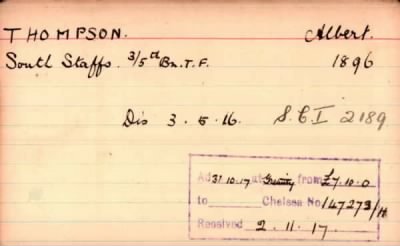 THOMPSON. Albert.
South Staffs. 3/5th Bn. T.F. 1896
Dis 3.5.16. S.C.I 2189
Ad 31.10.17 at Gratuity from £7.10.0
to Chelsea No 147273/H
Received 2.11.17.